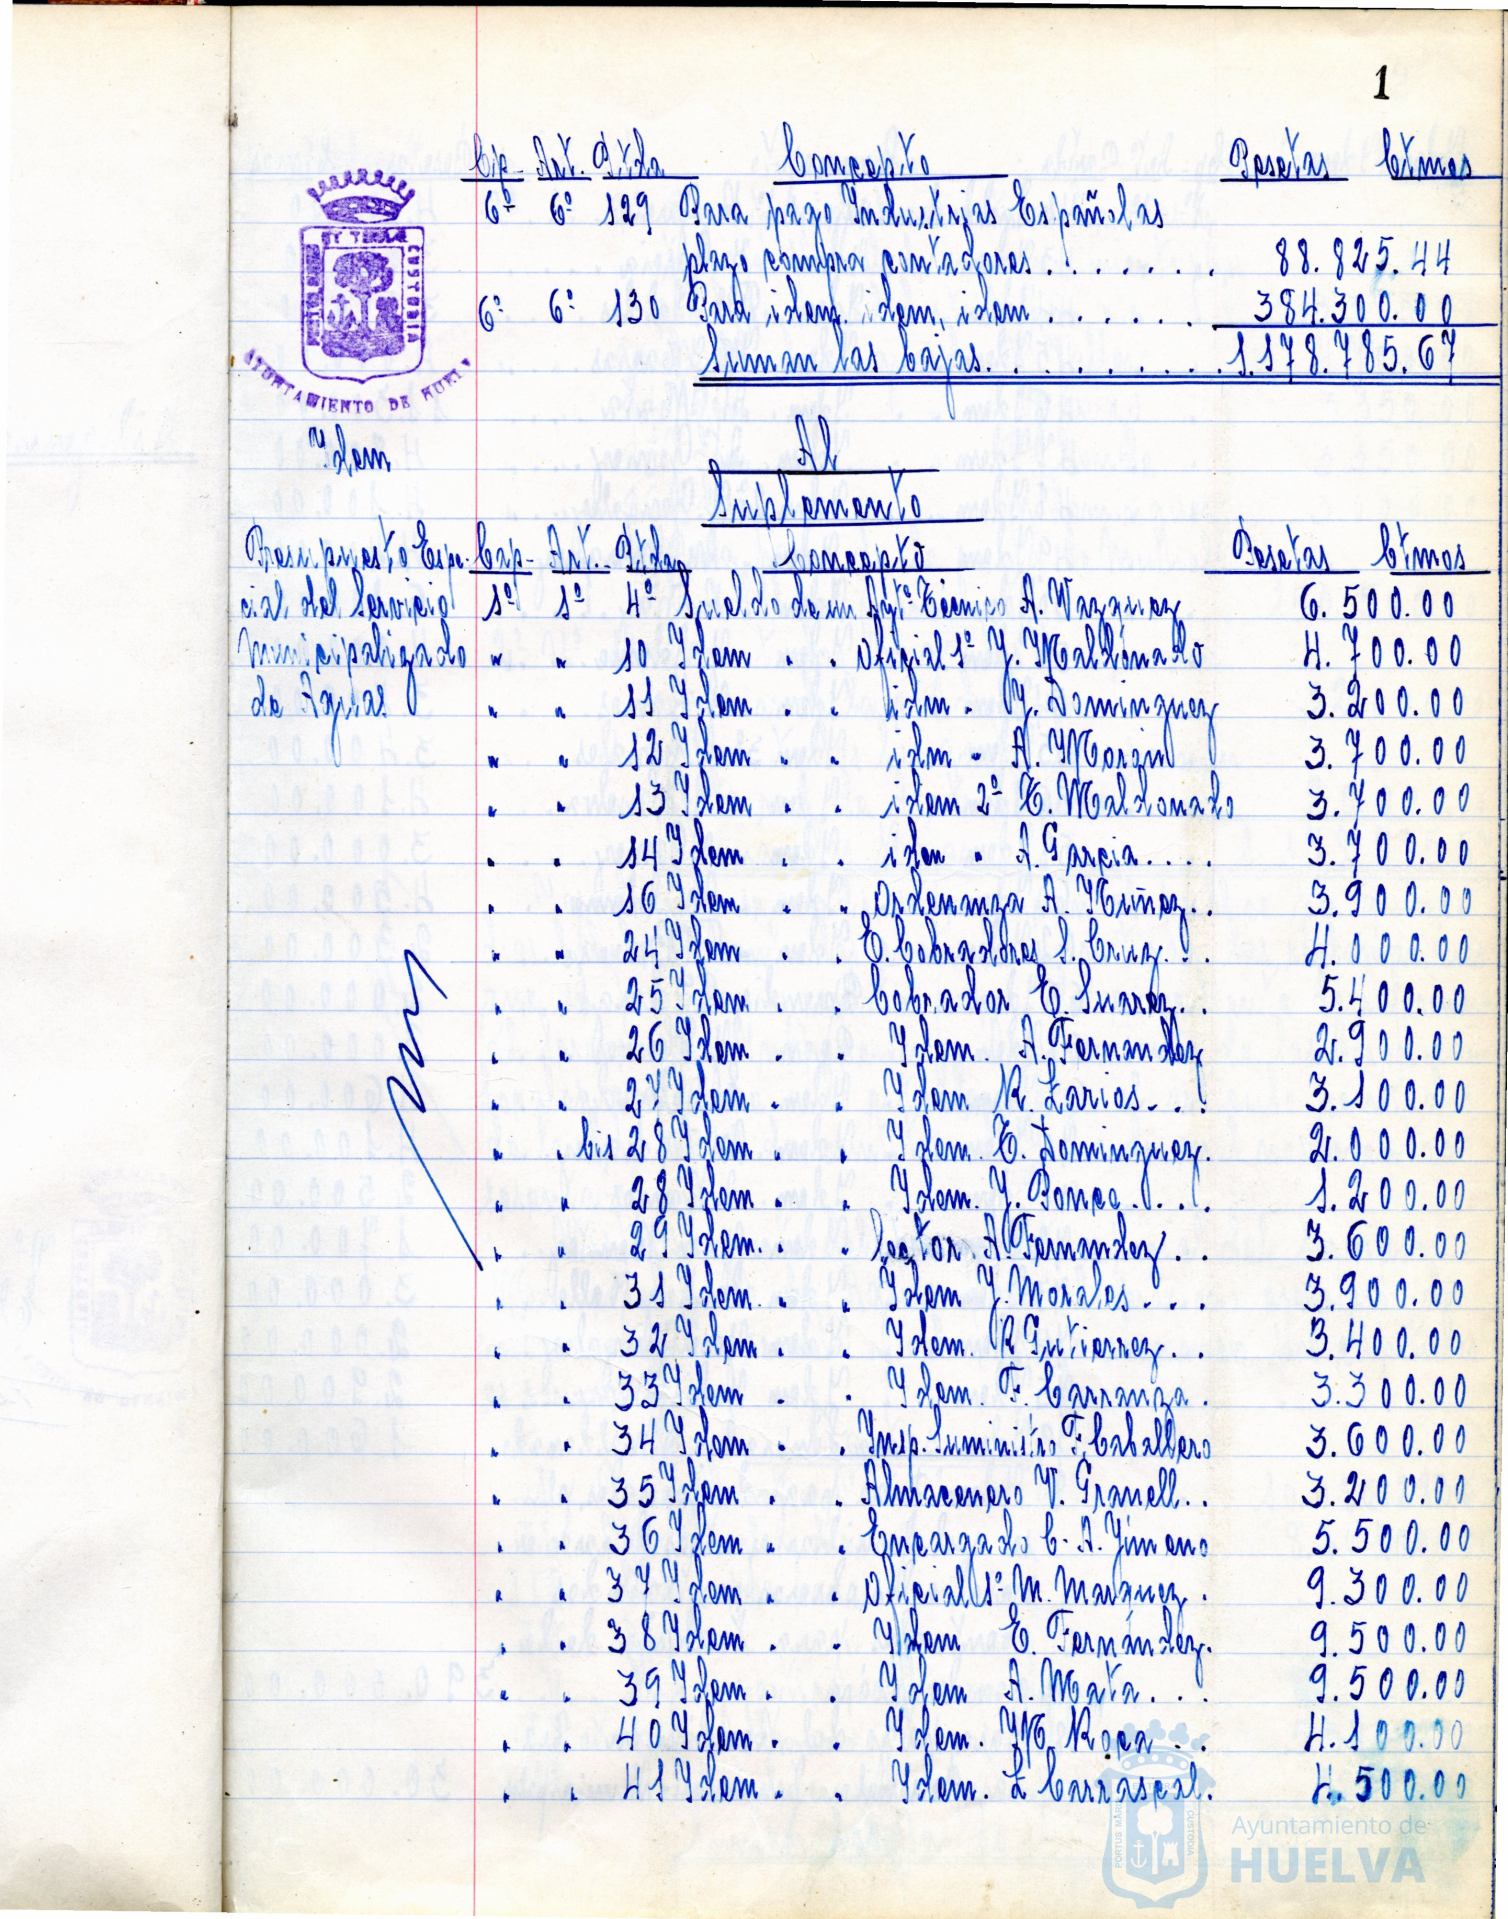 1
Cap. Art. Ptda Concepto Pesetas Ctmos
6º 6º 129 Para pago Industrias Españolas
plazo compra contadores....... 88.825.44
6º 6º 130 Para idem, idem, idem...... 384.300.00
Suman las bajas......... 1.178.785.67
PORTUS MARIS ET TERRAE CUSTODIA
AYUNTAMIENTO DE HUELVA
Idem
Al
Suplemento
Presupuesto Espe- Cap. Art. Ptda Concepto Pesetas Ctmos
cial del Servicio 1º 1º 4º Sueldo de un Aytº Técnico A. Vazquez 6.500.00
Municipalizado " " 10 Idem . . Oficial 1º J. Maldonado 4.700.00
de Aguas " " 11 Idem . . idm. J. Dominguez 3.200.00
" " 12 Idem . . idm " A. 3.700.00
" " 13 Idem . . idem 2º E. Maldonado 3.700.00
" " 14 Idem . . iden " A. Garcia.... 3.700.00
" " 16 Idem . . Ordenanza A. Nuñez.. 3.900.00
" " 24 Idem . . E. Cobradores S. Cruz... 4.000.00
" " 25 Idem . . Cobrador E. Suarez.. 5.400.00
" " 26 Idem . . Idem. A. Fernandez 2.900.00
" " 27 Idem . . Idem R. Larios... 3.100.00
" " bis 28 Idem . . Idem. E. Dominguez. 2.000.00
" " 28 Idem . . Idem. J. Ponce.... 1.200.00
" " 29 Idem. . . Lector. A. Fernandez.. 3.600.00
" " 31 Idem. . . Idem J. Morales... 3.900.00
" " 32 Idem . . Idem. R Gutierrez.. 3.400.00
" " 33 Idem . . Idem. F. Carranza. 3.300.00
" " 34 Idem . . Insp. Suministro F. Caballero 3.600.00
" " 35 Idem . . Almacenero V. Granell.. 3.200.00
" " 36 Idem . . Encargado C. A. Jimeno 5.500.00
" " 37 Idem . . Oficial 1º M. Marquez. 9.300.00
" " 38 Idem . . Idem E. Fernández. 9.500.00
" " 39 Idem . . Idem A. Mata... 9.500.00
" " 40 Idem . . Idem. M. Roca.. 4.100.00
" " 41 Idem . . Idem. L Carrascal. 4.500.00
PORTUS MARIS ET TERRAE CUSTODIA
Ayuntamiento de
HUELVA